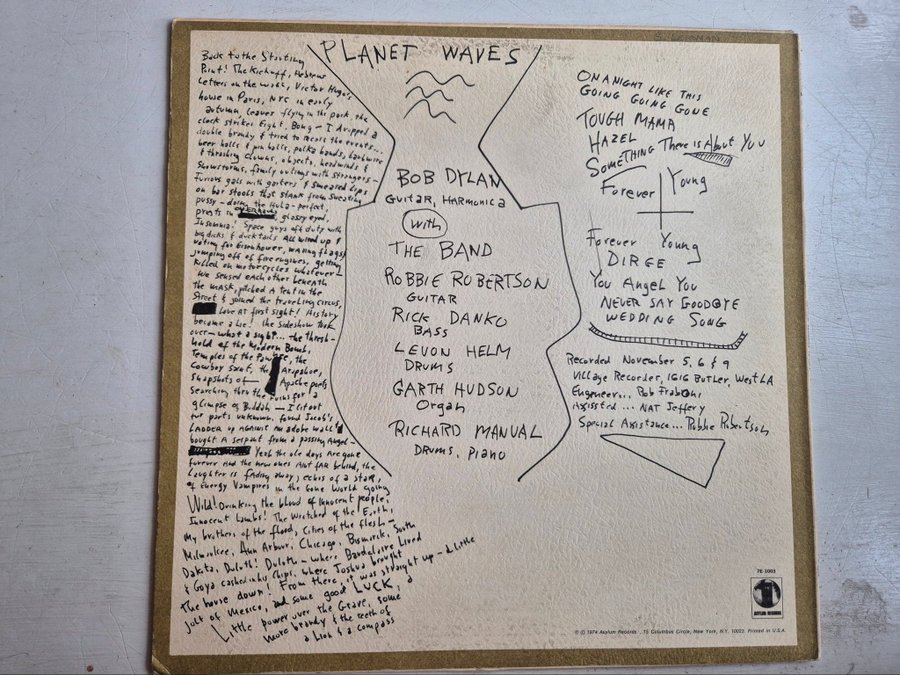 Back to the Starting
Point! The Kickoff, Hebrew
Letters on the wall, Victor Hugo's
house in Paris, NYC in early
autumn, leaves flying in the park, the
clock strikes Eight, Bong – I dropped a
double brandy & tried to recall the events...
beer halls & pin balls, polka bands, barbwire
& thrashing clowns, objects, headwinds &
Snowstorms, family outings with strangers –
Furious gals with garters & smeared lips
on bar stools that stank from sweating
pussy – doing the Hula – perfect,
priests in overhauls, glassy eyed,
Insomnia! Space guys off duty with
big dicks & duck tails All wired up &
voting for Eisenhower, waving flags &
jumping off of fire engines, getting
killed on motorcycles whatever –
We sensed each other beneath
the mask, pitched a tent in the
Street & joined the traveling circus,
Love at first sight! History
became a Lie! the sideshow took
over – what a sight... the thresh-
hold of the Modern Bomb,
Temples of the Pawnee, the
Cowboy Saint, the Arapahoe,
Snapshots of Apache poets
searching thru the ruins for a
glimpse of Buddah – I lit out
for parts unknown, found Jacob's
LADDER up AGAINST AN adobe wall &
bought A serpant from a passing Angel –
Yeah the ole days Are gone
forever And the new ones AINT fAR behind, the
Laughter is fading away, echos of a staR,
of Energy Vampires in the Gone World going
Wild! Drinking the blood of innocent people,
Innocent Lambs! The Wretched of the Earth,
My brothers of the flood, Cities of the flesh –
Milwaukee, Ann Arbor, Chicago, Bismarck, South
Dakota, Duluth! Duluth – where Baudelaire Lived
& Goya cashed in his Chips, where Joshua brought
the house down! From there, it was straight up – A Little
jolt of Mexico, and some good LUCK, a
Little power over the Grave, some
more brandy & the teeth of
a Lion & a compass
PLANET WAVES
BOB DYLAN
GUITAR, HARMONICA
With
THE BAND
ROBBIE ROBERTSON
GUITAR
RICK DANKO
BASS
LEVON HELM
DRUMS
GARTH HUDSON
Organ
RICHARD MANUAL
DRUMS, PIANO
ON A NIGHT LIKE THIS
GOING GOING GONE
TOUGH MAMA
HAZEL
SOMETHING There is About You
Forever Young
Forever Young
DIRGE
You Angel You
NEVER SAY GOODBYE
WEDDING SONG
Recorded November 5, 6 & 9
Village Recorder, 1616 BUTLER, West LA
Engeneer... Rob Fraboni
Assisted... NAT Jeffery
Special Assistance... Robbie Robertson
7E-1003
ASYLUM RECORDS
© ℗ 1974 Asylum Records 15 Columbus Circle, New York, N.Y. 10023. Printed in U.S.A.